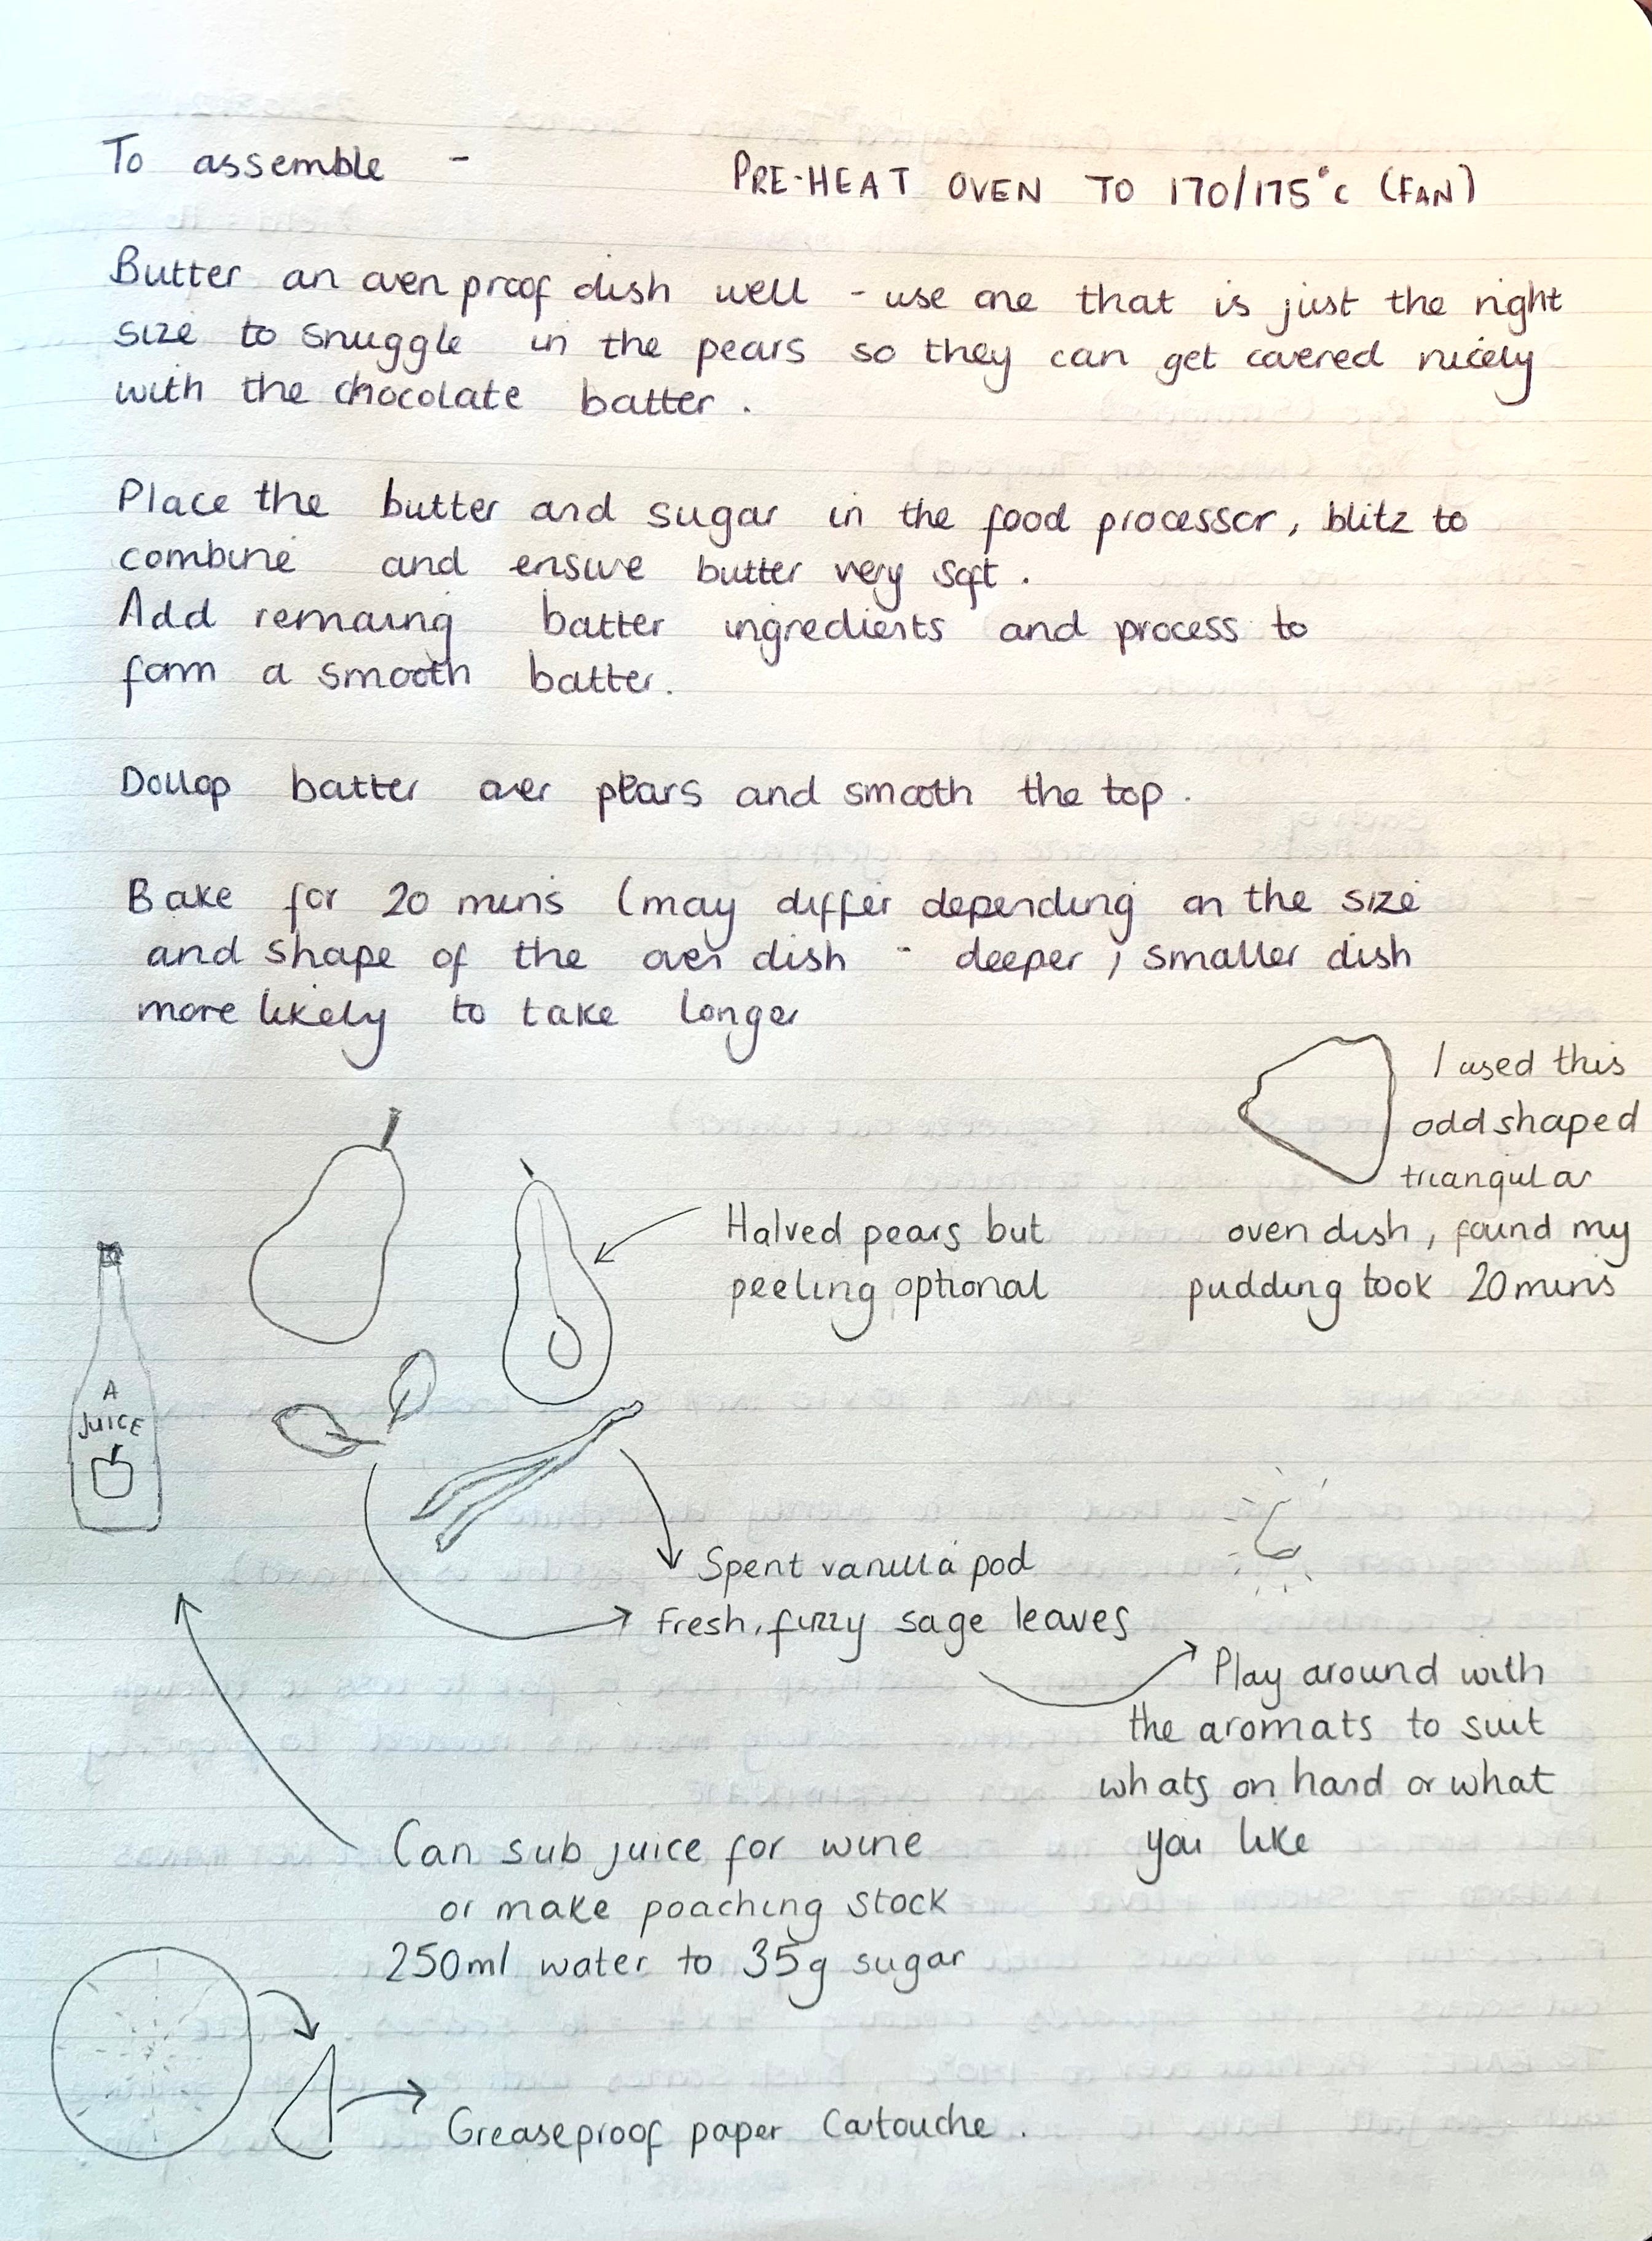 To assemble -
PRE-HEAT OVEN TO 170/175°C (FAN)
Butter an oven proof dish well - use one that is just the right
size to snuggle in the pears so they can get covered nicely
with the chocolate batter.
Place the butter and sugar in the food processor, blitz to
combine and ensure butter very soft.
Add remaing batter ingredients and process to
form a smooth batter.
Dollop batter over pears and smooth the top.
Bake for 20 mins (may differ depending on the size
and shape of the oven dish - deeper, smaller dish
more likely to take longer
I used this
odd shaped
triangular
oven dish, found my
pudding took 20 mins
Halved pears but
peeling optional
A
JUICE
Spent vanilla pod
Fresh, fuzzy sage leaves
Play around with
the aromats to suit
whats on hand or what
you like
Can sub juice for wine
or make poaching stock
250ml water to 35g sugar
Greaseproof paper Cartouche.